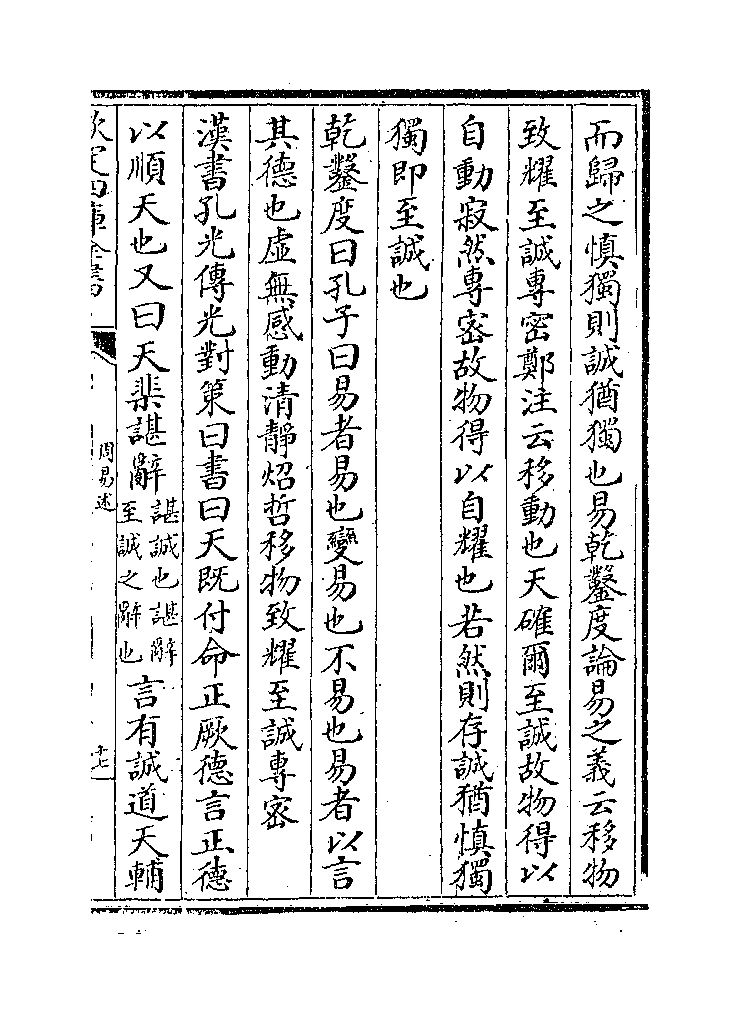 而歸之慎獨則誠猶獨也易乾鑿度論易之義云移物
致耀至誠專密鄭注云移動也天確爾至誠故物得以
自動寂然專密故物得以自耀也若然則存誠猶慎獨
獨即至誠也
乾鑿度曰孔子曰易者易也變易也不易也易者以言
其德也虛無感動清靜炤哲移物致耀至誠專密
漢書孔光傳光對策曰書曰天既付命正厥德言正德
以順天也又曰天棐諶辭諶誠也諶辭至誠之辭也言有誠道天輔
欽定四庫全書
周易述
十七